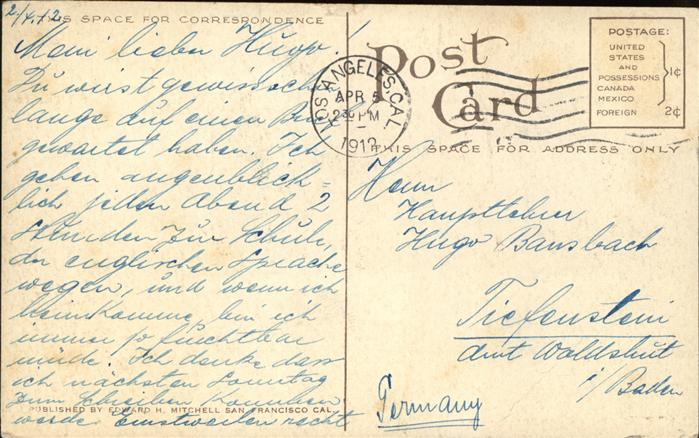 2/4.12.
THIS SPACE FOR CORRESPONDENCE
Mein lieber Hugo!
Du wirst gewiss schon
lange auf einen Brief
gewartet haben. Ich
gehen augenblick=
lich jeden Abend 2
Stunden zur Schule,
der englischen Sprache
wegen, und wenn ich
heimkomme, bin ich
immer so furchtbar
müde. Ich denke dass
ich nächsten Sonntag
zum Schreiben kommen
werde. Einstweilen recht
PUBLISHED BY EDWARD H. MITCHELL SAN FRANCISCO CAL.
Post
Card
LOS ANGELES, CAL.
APR 5
2 30 PM
1912
POSTAGE:
UNITED
STATES
AND
POSSESSIONS
CANADA
MEXICO
1¢
FOREIGN 2¢
THIS SPACE FOR ADDRESS ONLY
Herrn
Hauptlehrer
Hugo Bansbach
Tiefenstein
Amt Waldshut
i/Baden
Germany